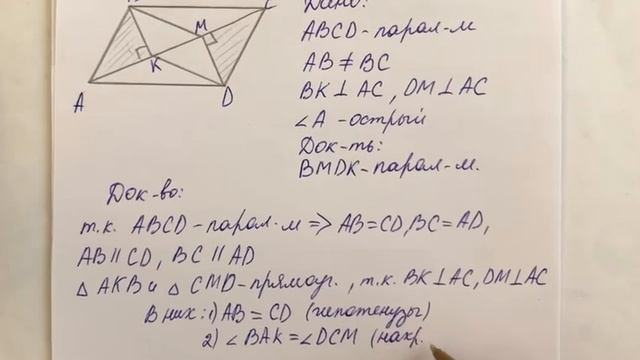 M
K
A
D
Дано:
ABCD - парал-м
AB ≠ BC
BK ⊥ AC, DM ⊥ AC
∠A - острый
Док-ть:
BMDK - парал-м.
Док-во:
т.к. ABCD - парал-м => AB = CD, BC = AD,
AB || CD, BC || AD
△ AKB и △ CMD - прямоуг., т.к. BK ⊥ AC, DM ⊥ AC
В них: 1) AB = CD (гипотенузы)
2) ∠BAK = ∠DCM (накр.